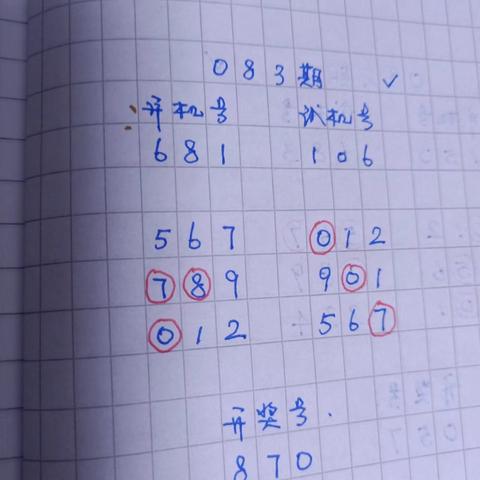 083期 ✓
开机号 试机号
681 106
567 012
789 901
012 567
开奖号.
870